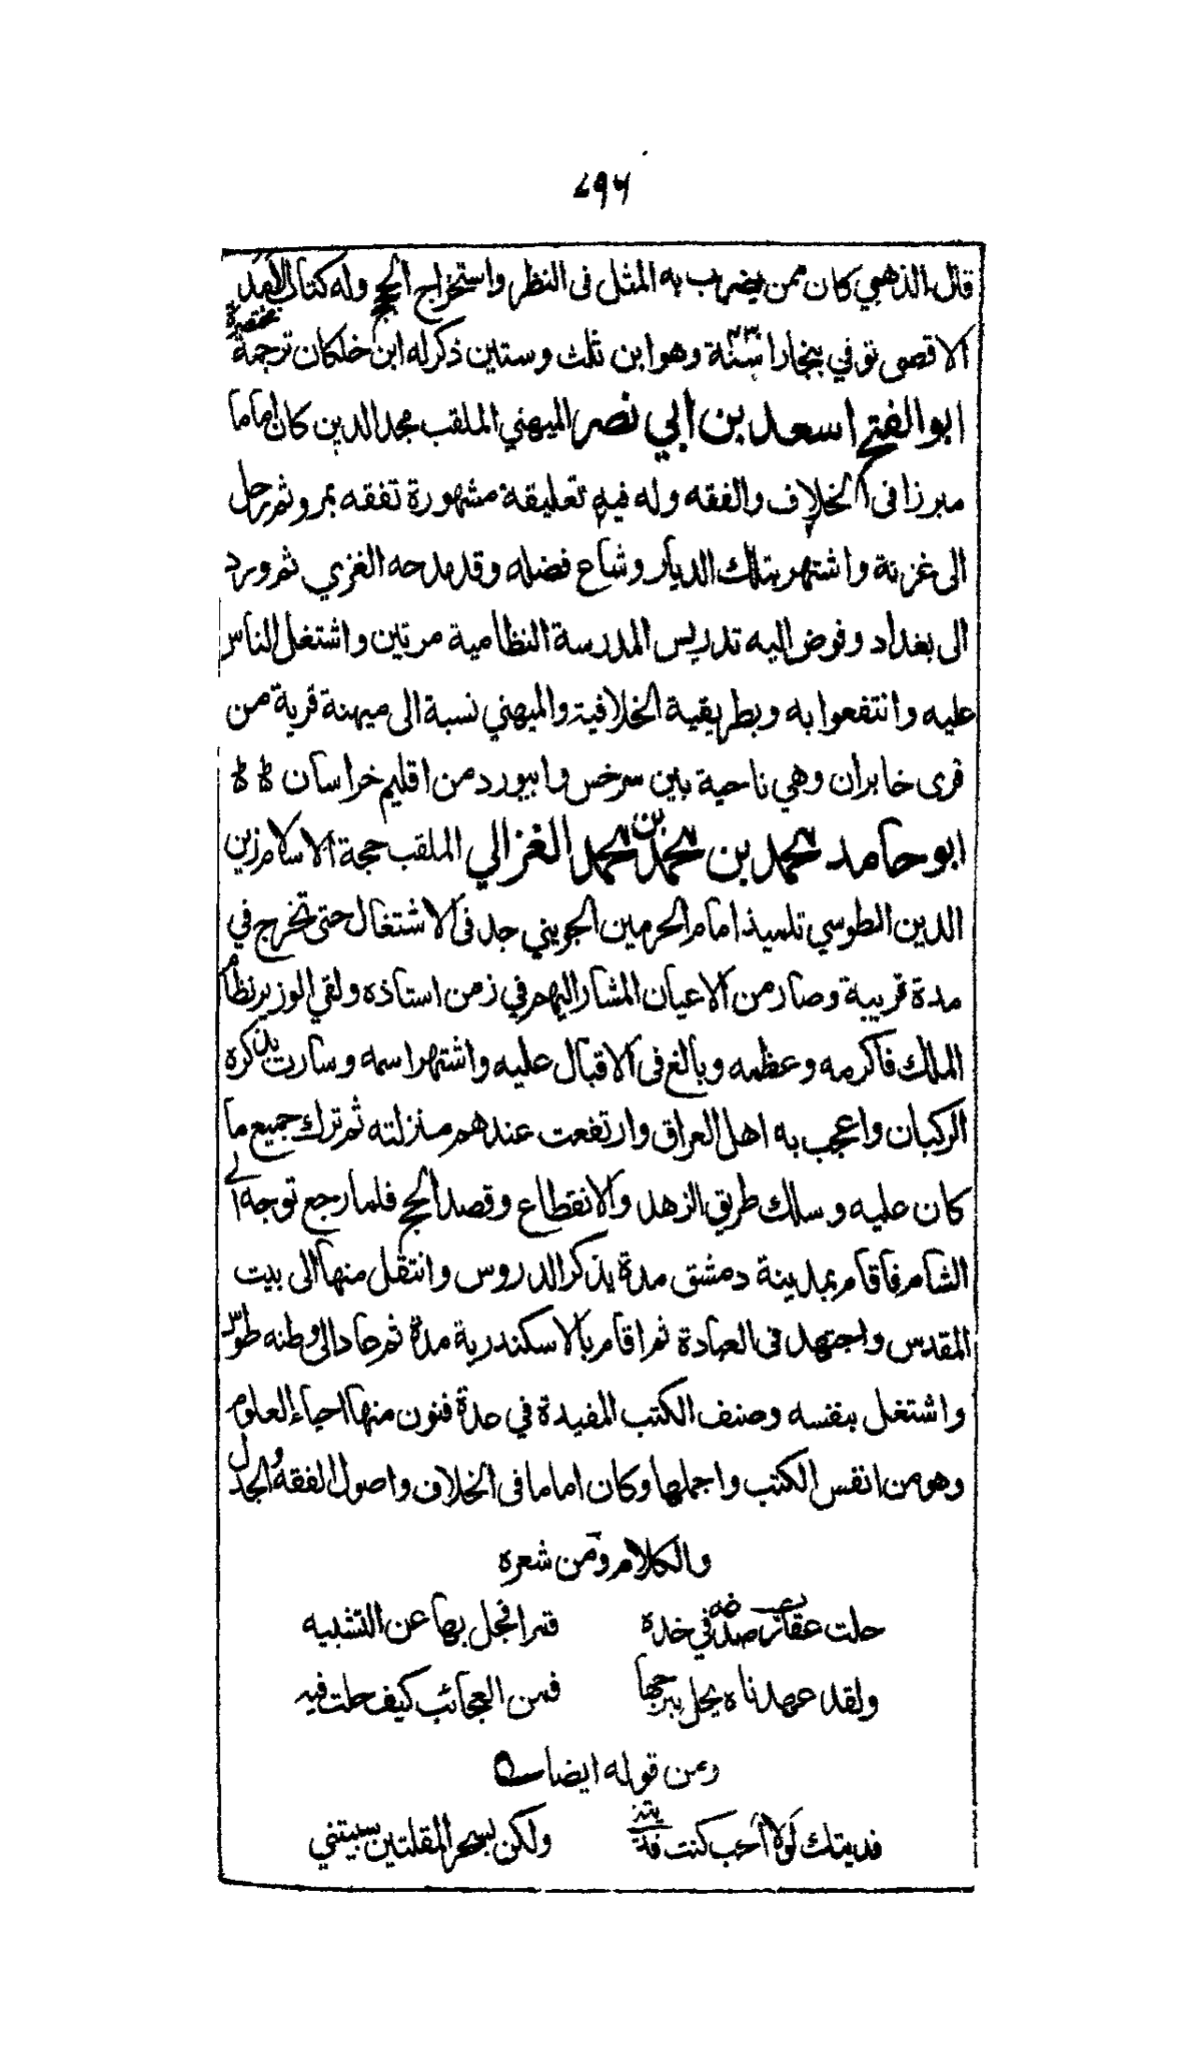 ٧٩٦
قال الذهبي كان ممن يضرب به المثل فى النظر واستخراج الحجج وله كتاب الامد
الاقصى توفي ببخارا سنة وهو ابن ثلث وستين ذكر له ابن خلكان ترجمة مختصرة
ابو الفتح اسعد بن ابي نصر الميهني الملقب مجد الدين كان اماما
مبرزا فى الخلاف والفقه وله فيه تعليقة مشهورة تفقه بمرو ثم رحل
الى غزنة واشتهر بتلك الديار وشاع فضله وقد مدحه الغزي ثم ورد
الى بغداد وفوض اليه تدريس المدرسة النظامية مرتين واشتغل الناس
عليه وانتفعوا به وبطريقية الخلافية والميهني نسبة الى ميهنة قرية من
قرى خابران وهي ناحية بين سرخس وابيورد من اقليم خراسان
ابو حامد محمد بن محمد بن محمد الغزالي الملقب حجة الاسلام زين
الدين الطوسي تلميذ امام الحرمين الجويني جد فى الاشتغال حتى تخرج في
مدة قريبة وصار من الاعيان المشار اليهم في زمن استاذه ولقي الوزير نظام
الملك فاكرمه وعظمه وبالغ فى الاقبال عليه واشتهر اسمه وسارت بذكره
الركبان واعجب به اهل العراق وارتفعت عندهم منزلته ثم ترك جميع ما
كان عليه وسلك طريق الزهد والانقطاع وقصد الحج فلما رجع توجه الى
الشام فاقام بمدينة دمشق مدة يذكر الدروس وانتقل منها الى بيت
المقدس واجتهد فى العبادة ثم اقام بالاسكندرية مدة ثم عاد الى وطنه طوس
واشتغل بنفسه وصنف الكتب المفيدة في عدة فنون منها احياء العلوم
وهو من انفس الكتب واجملها وكان اماما فى الخلاف واصول الفقه والجدل
والكلام ومن شعره
حلت عقارب صدغه في خده قمرا فجل بها عن التشبيه
ولقد عهدناه يحل ببرجها فمن العجائب كيف حلت فيه
ومن قوله ايضا
فديتك لولا الحب كنت فديتني ولكن بسحر المقلتين سبيتني